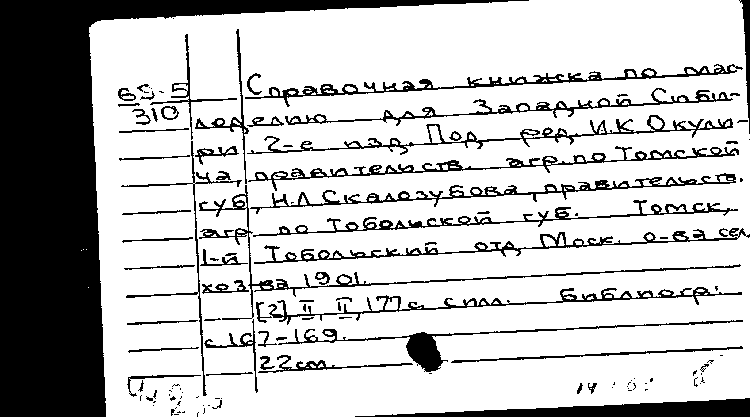 65-5
310
Справочная книжка по мас-
лоделию для Западной Сиби-
ри. 2-е изд. Под ред. И.К Окули-
ча, правительств. агр. по Томской
губ, Н.Л Скалозубова, правительств.
агр. по Тобольской губ. Томск,
1-й Тобольский отд. Моск. о-ва сел
хоз-ва, 1901.
[2], II, II, 177 с. с илл. Библиогр.:
с. 167-169.
22 см.